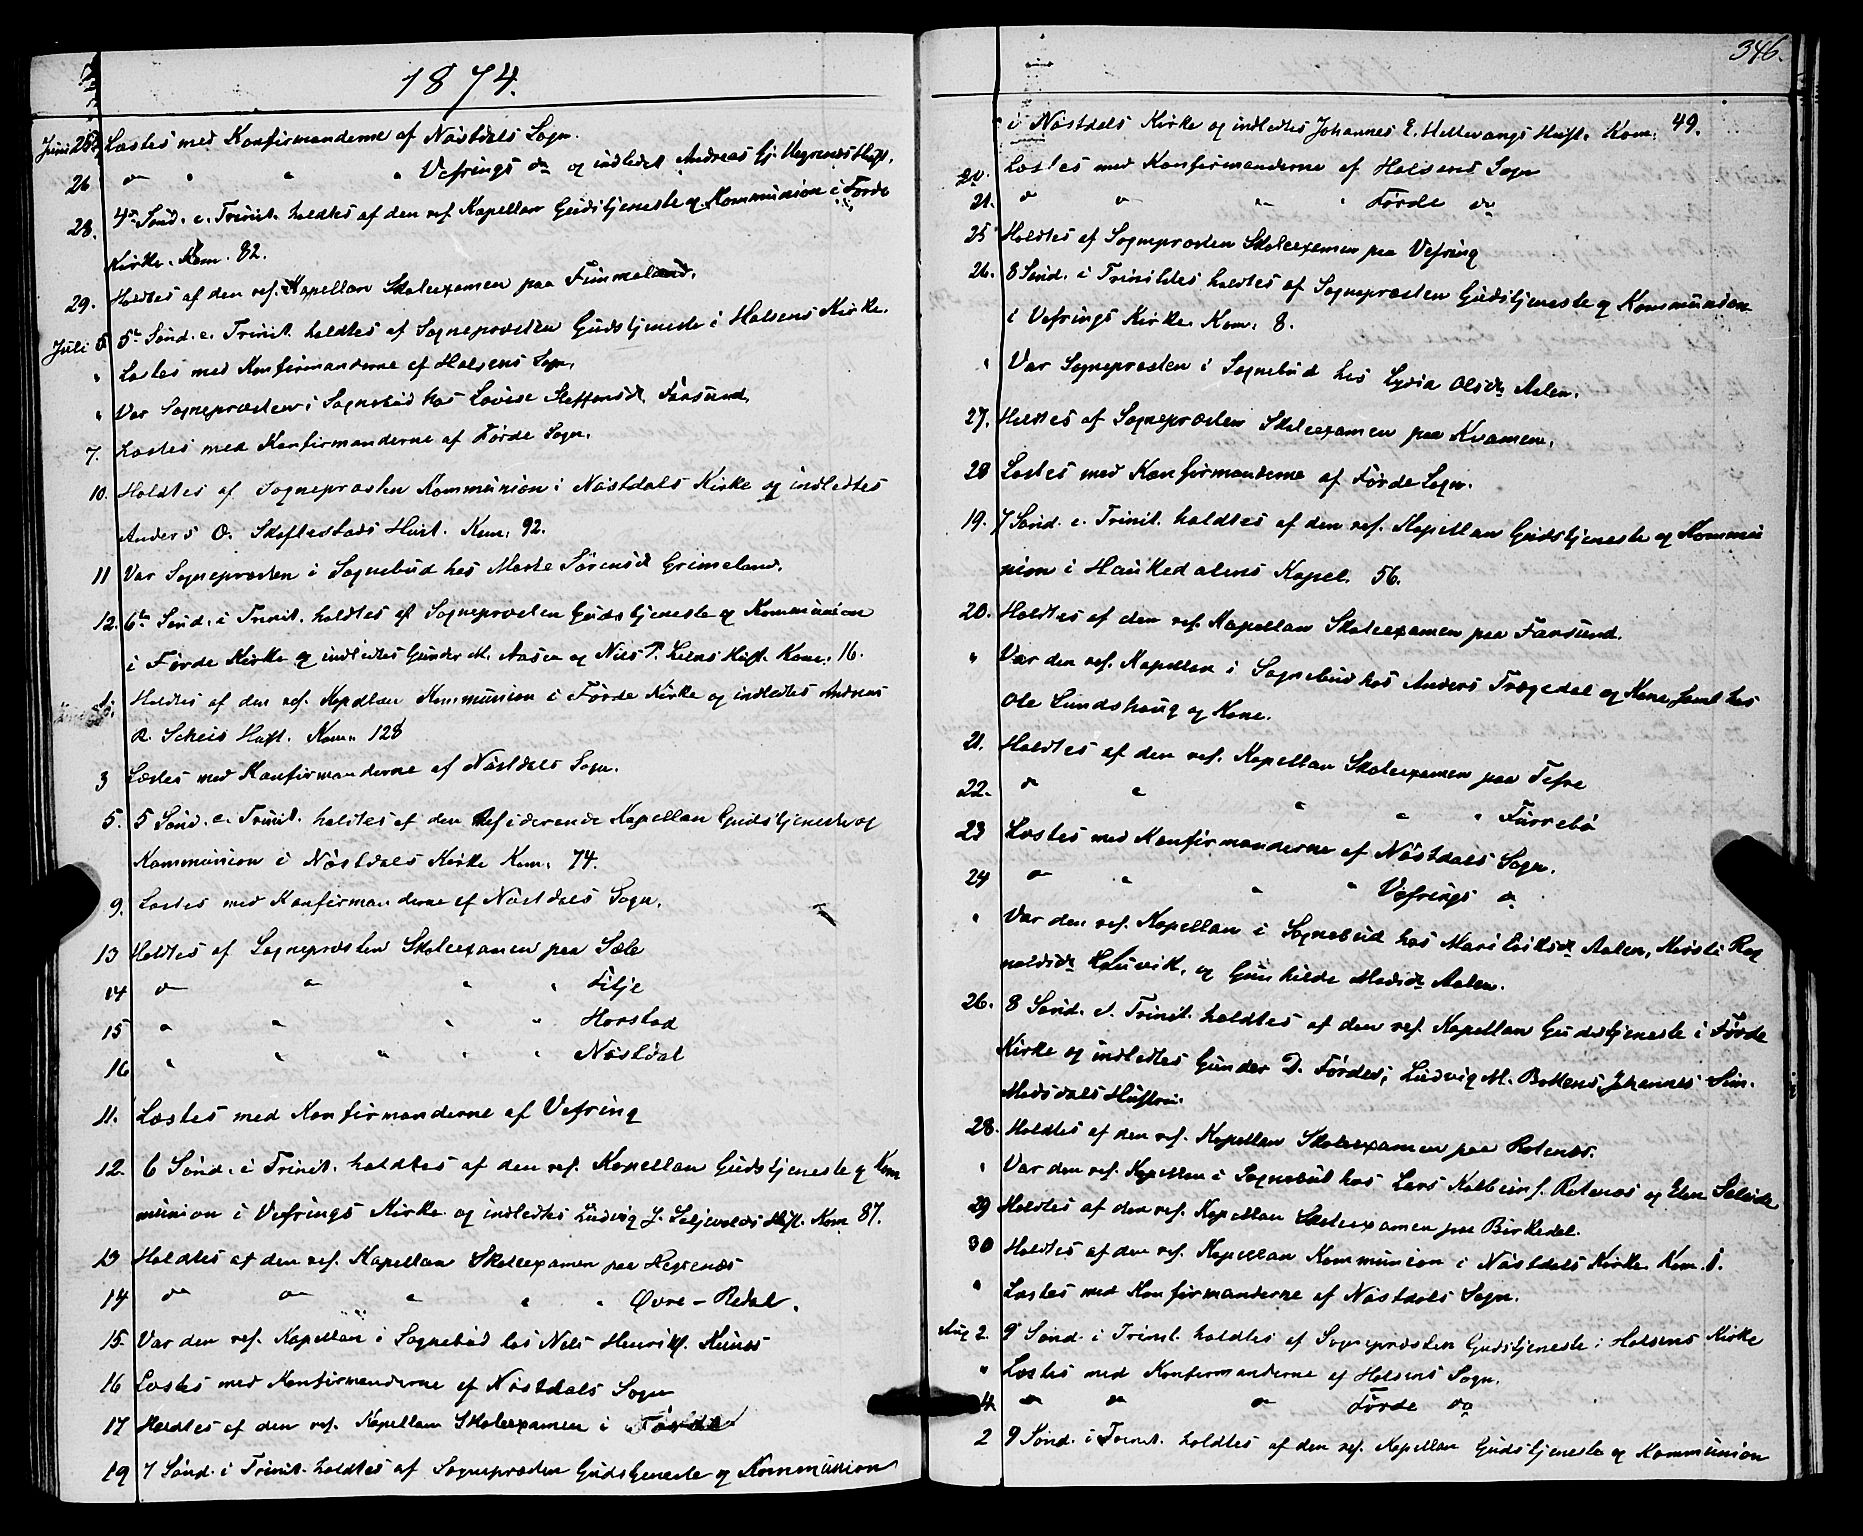 1874.
Juni 25. Læstes med Konfirmanderne af Nöstdals Sogn.
26 do " " " Vefrings do og indledet Andreas Gj. Hegrenes Hust.
28. 4de Sönd. e. Trinit. holdtes af den res. Kapellan Gudstjeneste og Kommunion i Förde
Kirke. Kom. 82.
29. Holdtes af den res. Kapellan Skoleexamen paa Fimmeland.
Juli 5. 5te Sönd. e. Trinit. holdtes af Sognepræsten Gudstjeneste i Holsens Kirke.
" Læstes med Konfirmanderne af Holsens Sogn.
" Var Sognepræsten i Sognebud hos Lovise Steffensdr. Farsund.
7. Læstes med Konfirmanderne af Förde Sogn.
10. Holdtes af Sognepræsten Kommunion i Nöstdals Kirke og indledtes
Anders O. Skaflestads Hust. Kom. 92.
11 Var Sognepræsten i Sognebud hos Marte Sörensdr Grimeland.
12. 6te Sönd. i Trinit. holdtes af Sognepræsten Gudstjeneste og Kommunion
i Förde Kirke og indledtes Gunder M. Aasen og Nils P. Liens Hust. Kom. 16.
Holdtes af den res. Kapellan Kommunion i Förde Kirke og indledtes Andreas
R. Scheis Hust. Kom. 128
3 Læstes med Konfirmanderne af Nöstdals Sogn.
5. 5 Sönd. e. Trinit. holdtes af den Residerende Kapellan Gudstjeneste og
Kommunion i Nöstdals Kirke Kom. 74.
9. Læstes med Konfirmanderne af Nöstdals Sogn.
13 Holdtes af Sognepræsten Skoleexamen paa Sæle
14 do " " " Filje
15 " " " " Horstad
16 " " " " " Nöstdal
11. Læstes med Konfirmanderne af Vefring
12. 6 Sönd. i Trinit. holdtes af den res. Kapellan Gudstjeneste og Kom
munion i Vefrings Kirke og indledtes Ludvig J. Seljevolds Hust. Kom 87.
13 Holdtes af den res. Kapellan Skoleexamen paa Hegrenes
14 do do " " " Övre-Redal.
15. Var den res. Kapellan i Sognebud hos Nils Henriks. Hunes
16 Læstes med Konfirmanderne af Nöstdals Sogn
17 Holdtes af den res. Kapellan Skoleexamen i Förde
19 7 Sönd. i Trinit. holdtes af Sognepræsten Gudstjeneste og Kommunion
346.
i Nöstdals Kirke og indledtes Johannes E. Hellevangs Hust. Kom. 49.
20. Læstes med Konfirmanderne af Holsens Sogn
21. do do " " Förde do
25 Holdtes af Sognepræsten Skoleexamen paa Vefring
26. 8 Sönd. i Trinitites holdtes af Sognepræsten Gudstjeneste og Kommunion
i Vefrings Kirke Kom. 8.
" Var Sognepræsten i Sognebud hos Lydia Olsdr Aalen.
27. Holdtes af Sognepræsten Skoleexamen paa Kvamen.
28 Læstes med Konfirmanderne af Förde Sogn.
19. 7 Sönd. e. Trinit. holdtes af den res. Kapellan Gudstjeneste og Kommu
nion i Haukedalens Kapel. 56.
20. Holdtes af den res. Kapellan Skoleexamen paa Farsund.
" Var den res. Kapellan i Sognebud hos Anders Trægedal og Kone samt hos
Ole Sundshaug og Kone.
21. Holdtes af den res. Kapellan Skoleexamen paa Tefre
22. do " " " " Farrebö
23 Læstes med Konfirmanderne af Nöstdals Sogn.
24 do " " " Vefrings do
" Var den res. Kapellan i Sognebud hos Mari Eriksdr Aalen, Kirsti Rag
naldsdr Huvik, og Gunhilde Madsdr Aalen.
26. 8 Sönd. e. Trinit. holdtes af den res. Kapellan Gudstjeneste i Förde
Kirke og indledtes Gunder D. Fördes, Ludvig M. Bottens, Johannes Sim.
Mosdals Hustru.
28. Holdtes af den res. Kapellan Skoleexamen paa Rotenes.
" Var den res. Kapellan i Sognebud hos Lars Kolbeins. Rotenes og Elen Solside
29 Holdtes af den res. Kapellan Skoleexamen paa Birkedal.
30 Holdtes af den res. Kapellan Kommunion i Nöstdals Kirke. Kom. 1.
" Læstes med Konfirmanderne af Nöstdals Sogn.
Aug 2. 9de Sönd. i Trinit. holdtes af Sognepræsten Gudstjeneste i Holsens Kirke
" Læstes med Konfirmanderne af Holsens Sogn.
4. do do do Förde do
2 9 Sönd. i Trinit. holdtes af den res. Kapellan Gudstjeneste og Kommunion